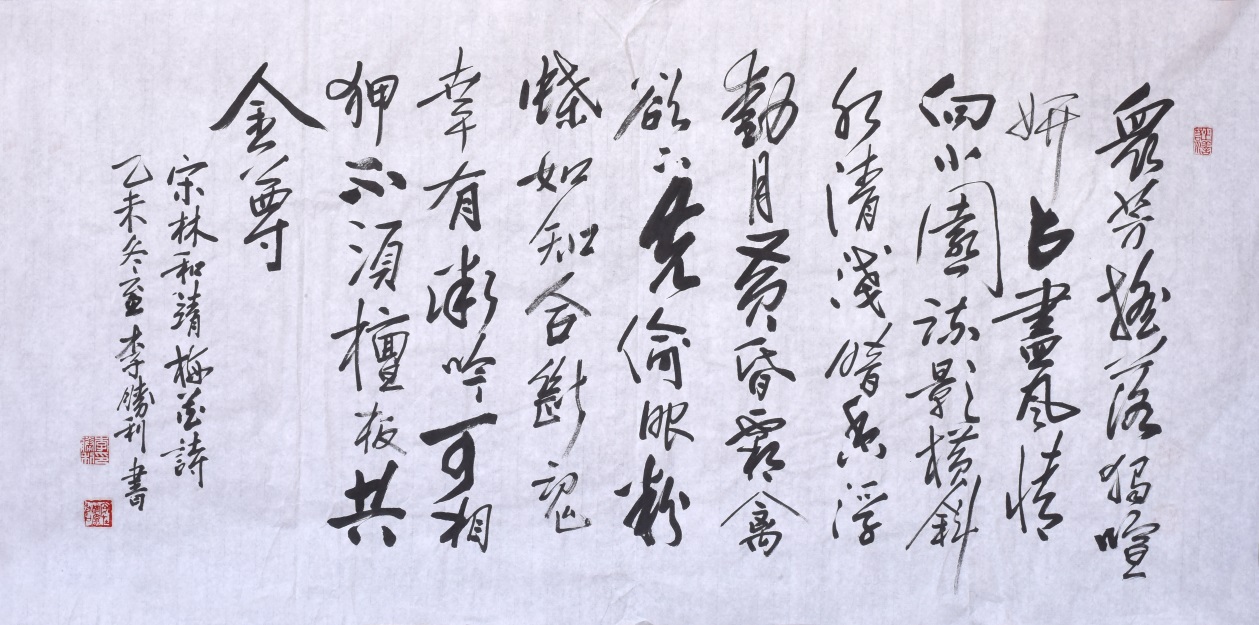 眾芳搖落獨喧
妍占盡風情
向小園疎影橫斜
水清淺暗香浮
動月黄昏霜禽
欲下先偷眼粉
蝶如知合斷魂
幸有微吟可相
狎不須檀板共
金尊
宋林和靖梅花詩
乙未冬至李勝利書